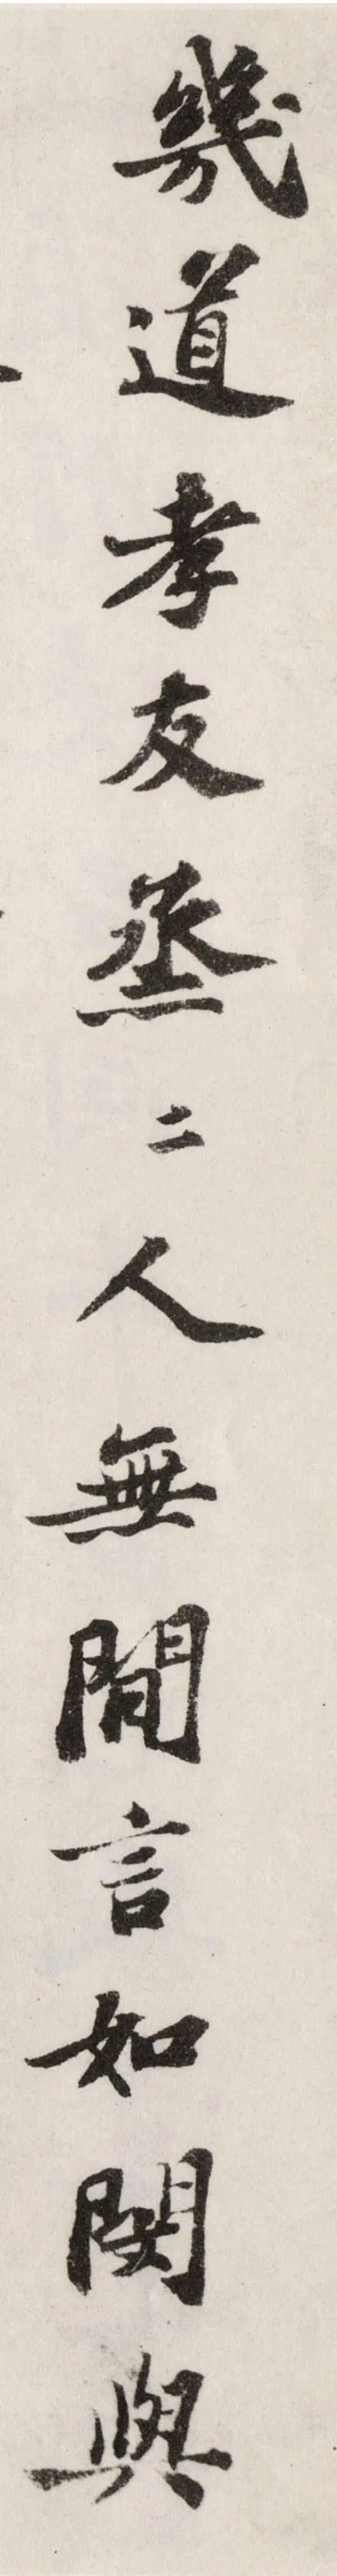 幾道孝友蒸二人無間言如閔與